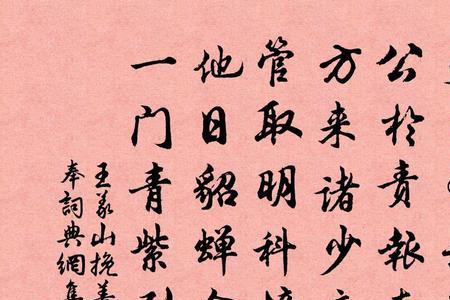 公於责報
方来诸少
管取明科
他日貂蝉
一门青紫
王義山挽姜
奉詞典網集